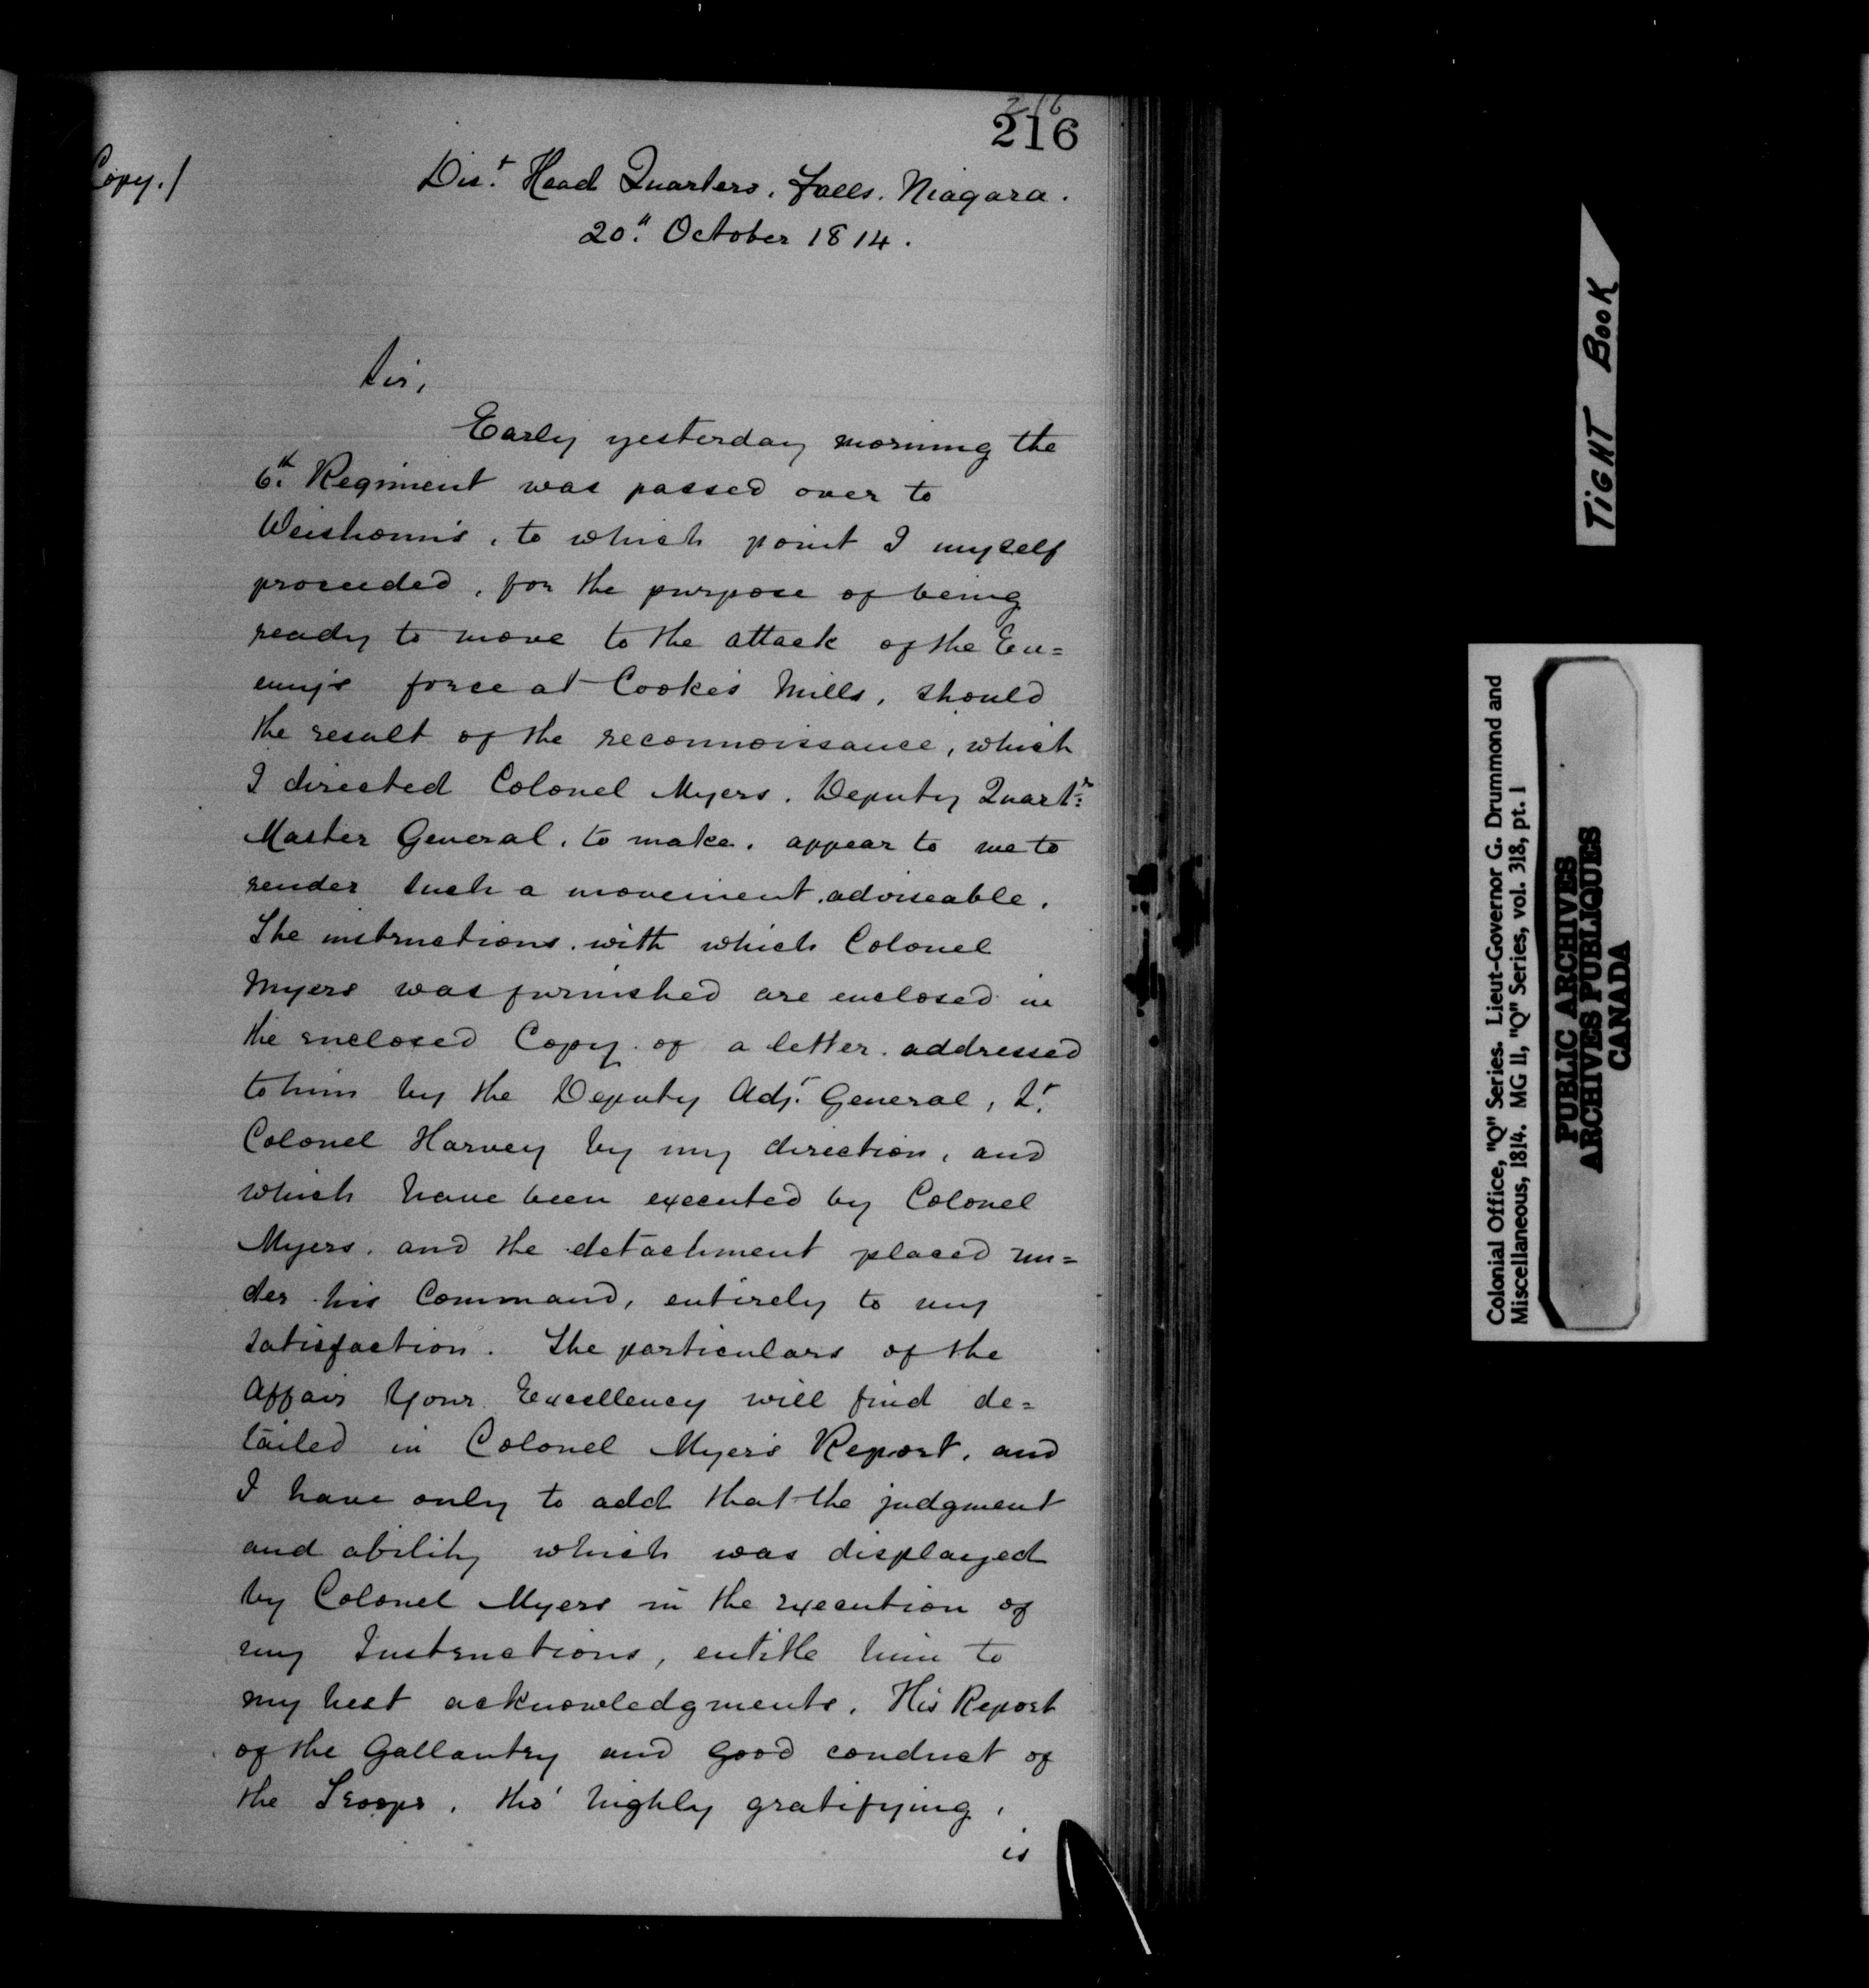 216
216
Copy./
Dis.t Head Quarters. Falls. Niagara.
20.th October 1814.
Sir,
Early yesterday morning the
6.th Regiment was passed over to
Weishonn's, to which point I myself
proceeded, for the purpose of being
ready to move to the attack of the En=
emy's force at Cooke's Mills, should
the result of the reconnoissance, which
I directed Colonel Myers. Deputy Quart.r
Master General, to make, appear to me to
render such a movement adviseable.
The instructions with which Colonel
Myers was furnished are enclosed in
the enclosed Copy of a letter addressed
to him by the Deputy Adj.t General, L.t
Colonel Harvey by my direction, and
which have been executed by Colonel
Myers, and the detachment placed un=
der his Command, entirely to my
satisfaction. The particulars of the
Affair Your Excellency will find de=
tailed in Colonel Myer's Report, and
I have only to add that the judgment
and ability which was displayed
by Colonel Myers in the execution of
my Instructions, entitle him to
my best acknowledgments. His Report
of the Gallantry and Good conduct of
the Troops, tho' highly gratifying,
is
TIGHT BOOK
Colonial Office, "Q" Series. Lieut-Governor G. Drummond and
Miscellaneous, 1814. MG 11, "Q" Series, vol. 318, pt. 1
PUBLIC ARCHIVES
ARCHIVES PUBLIQUES
CANADA